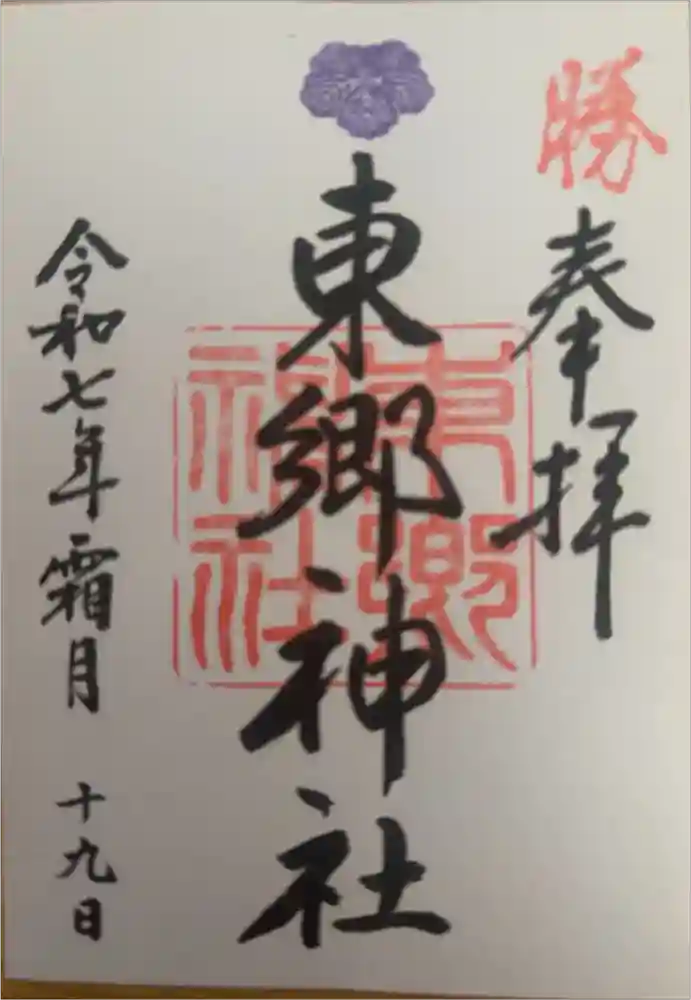 勝
奉拝
東郷神社
東郷神社
令和七年霜月 十九日